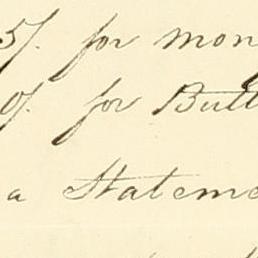 5/. for mon
0/. for Butt
a Stateme